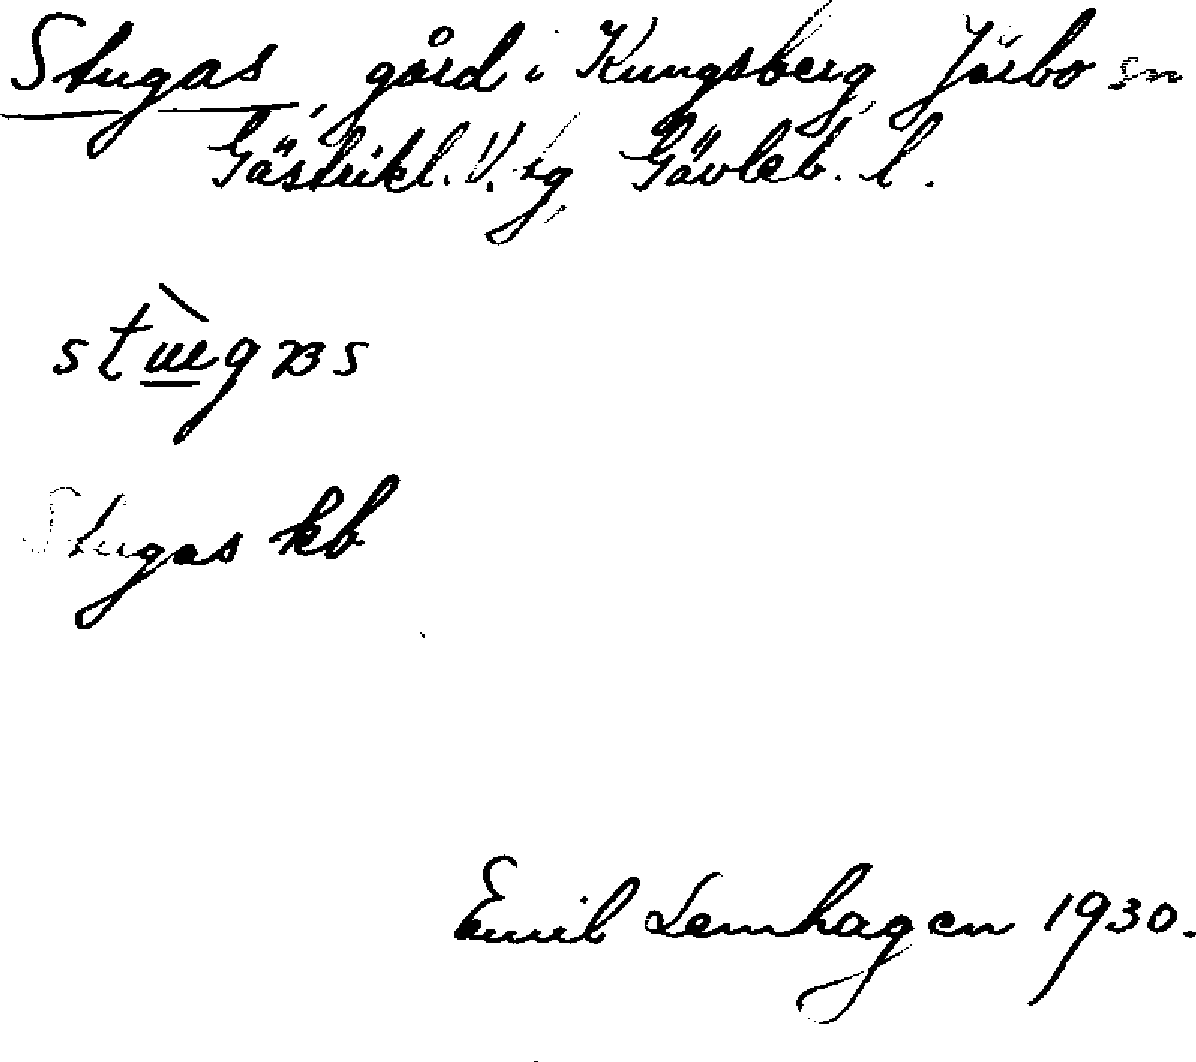 Stugas, gård i Kungsberg, Järbo sn
Gästrikl. V. tg, Gävleb. l.
Stugas kb
Emil Lennhagen 1930.